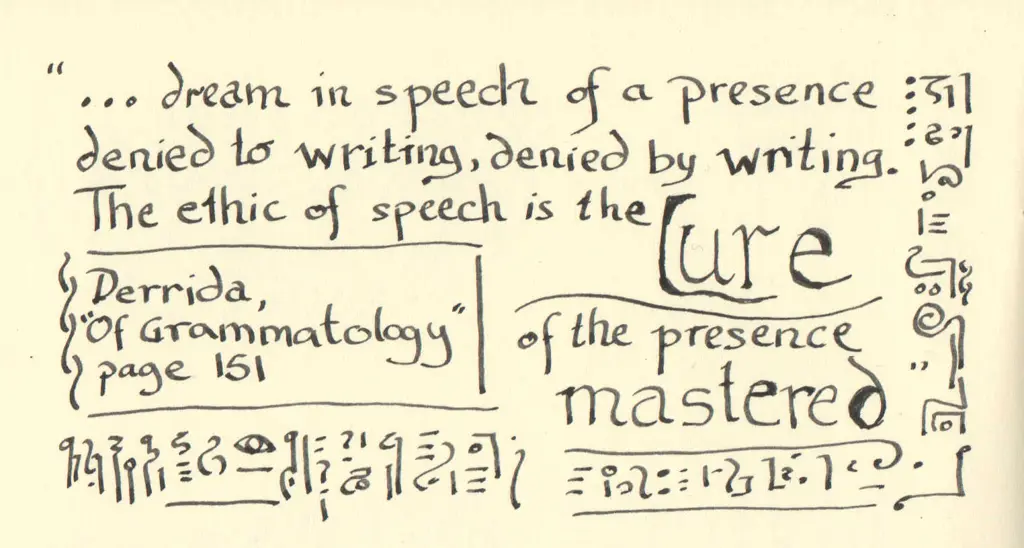 “... dream in speech of a presence
denied to writing, denied by writing.
The ethic of speech is the Lure
of the presence
mastered”
Derrida,
"Of Grammatology"
page 151